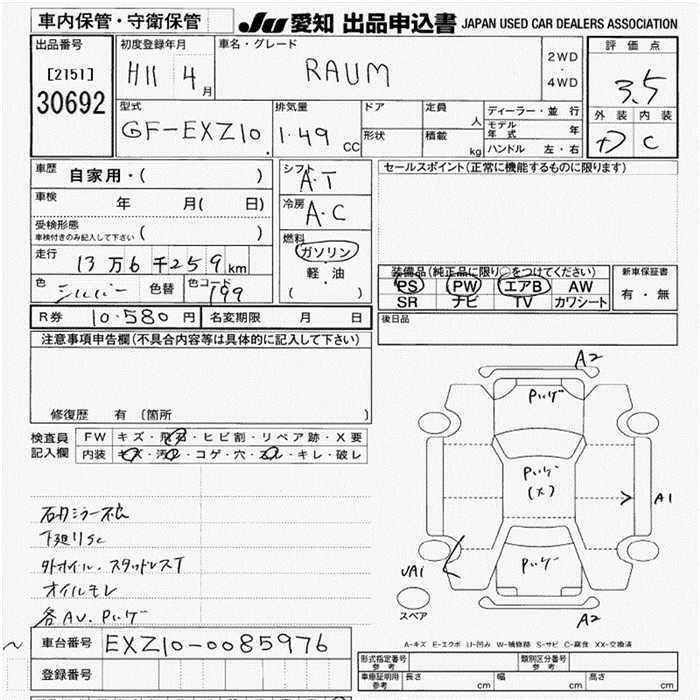 車内保管・守衛保管
JU 愛知 出品申込書 JAPAN USED CAR DEALERS ASSOCIATION
出品番号
[2151]
30692
初度登録年月
H11 4月
車名・グレード
RAUM
2WD
・
4WD
評価点
3.5
外装 内装
C
型式
GF-EXZ10
排気量
1.49 CC
ドア
形状
定員 人
積載 kg
ディーラー・並行
モデル年式 年
ハンドル 左・右
車歴 自家用・( )
車検 年 月( 日)
受検形態
車検付きのみ記入して下さい ( )
走行 13万6千259km
色 シルバー 色替 色コード 199
シフト
A・T
冷房
A・C
燃料
ガソリン
軽・油
( )
セールスポイント(正常に機能するものに限ります)
装備品(純正品に限り○をつけてください)
PS PW エアB AW
SR ナビ TV カワシート
新車保証書
有・無
R券 10.580円 名変期限 月 日
後日品
注意事項申告欄(不具合内容等は具体的に記入して下さい)
修復歴 有 〔箇所 〕
検査員記入欄
FW キズ・飛石・ヒビ割・リペア跡・X要
内装 キズ・汚れ・コゲ・穴・スレ・キレ・破レ
下廻りSC
外オイル、スタッドレスT
オイルモレ
各AU、Pハゲ
A2
Pハゲ
Pハゲ
(大)
A1
Pハゲ
UA1
スペア
A2
A-キズ E-エクボ U-凹み W-補修跡 S-サビ C-腐食 XX-交換済
車台番号 EXZ10-0085976
登録番号
形式指定番号
参考
類別区分番号
参考
車庫証明用
参考
長さ cm 幅 cm 高さ cm